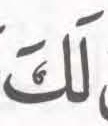 لَكَ